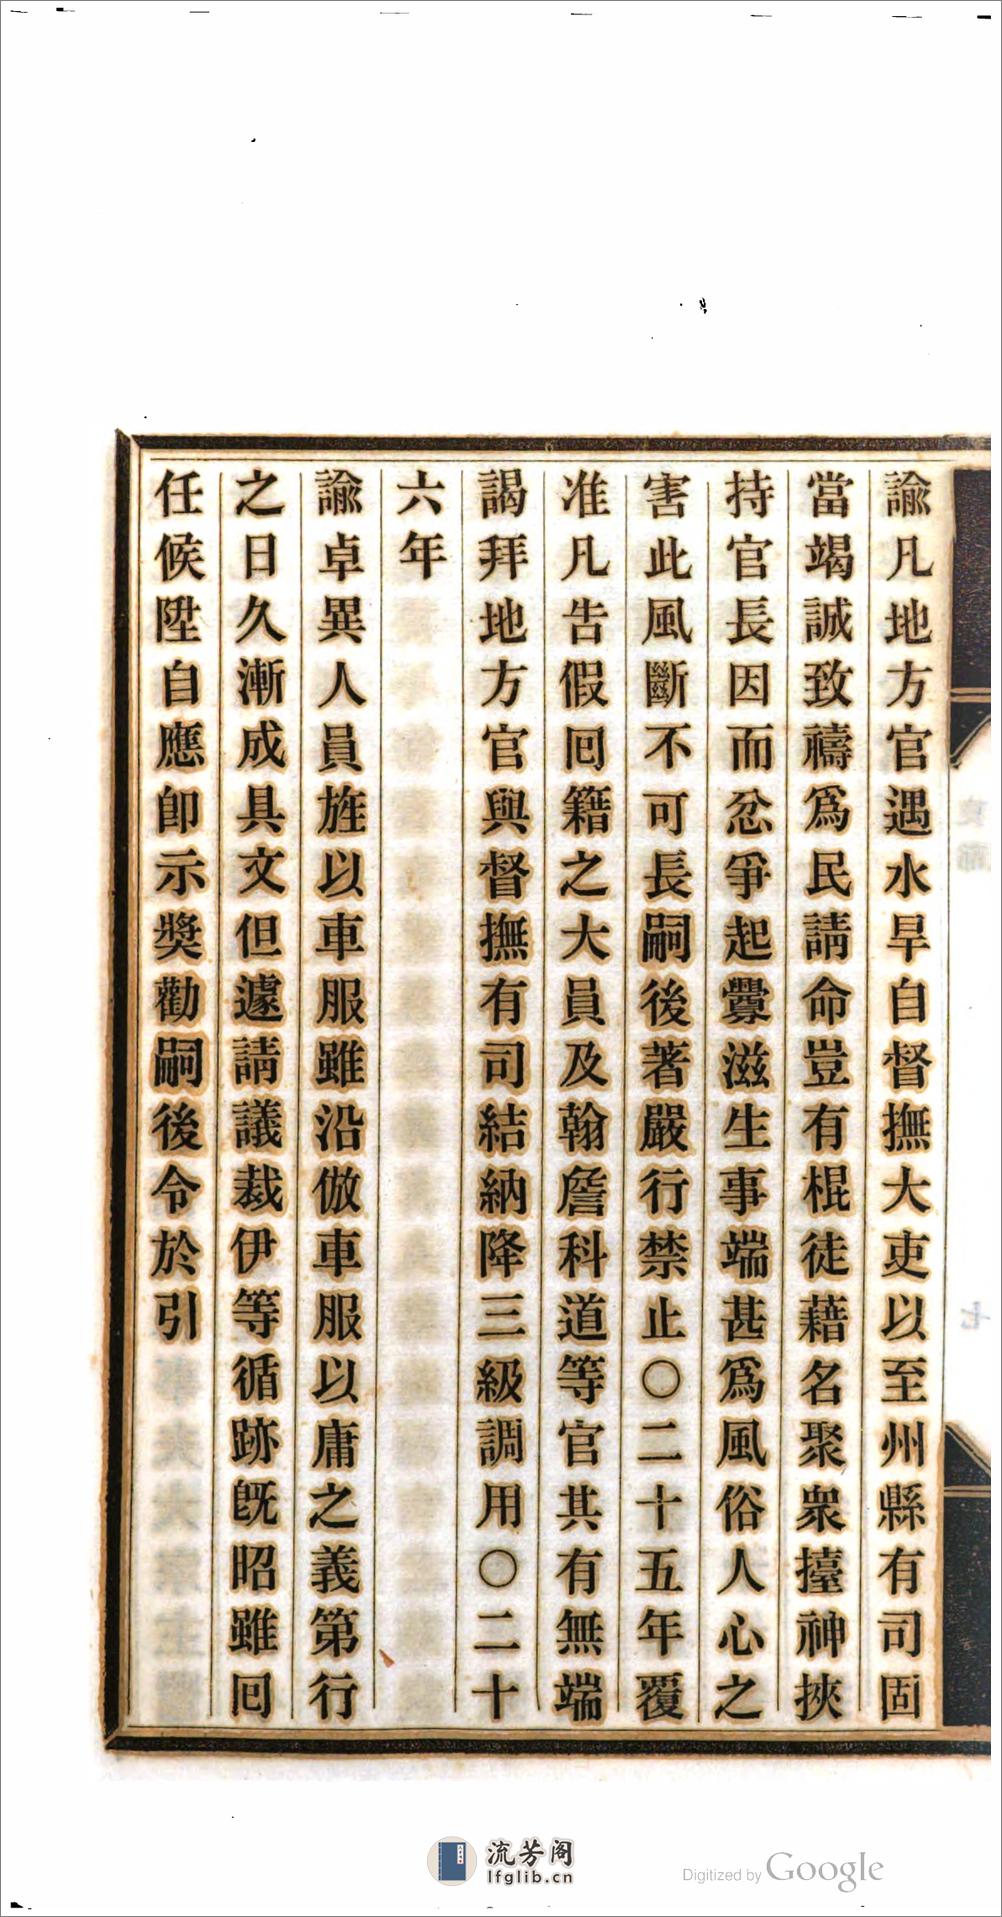 諭凡地方官遇水旱自督撫大吏以至州縣有司固
當竭誠致禱爲民請命豈有棍徒藉名聚衆擡神挾
持官長因而忿爭起釁滋生事端甚爲風俗人心之
害此風斷不可長嗣後著嚴行禁止○二十五年覆
准凡告假回籍之大員及翰詹科道等官其有無端
謁拜地方官與督撫有司結納降三級調用○二十
六年
諭卓異人員旌以車服雖沿倣車服以庸之義第行
之日久漸成具文但遽請議裁伊等循跡旣昭雖回
任候陞自應卽示獎勸嗣後令於引
七
流芳阁
lfglib.cn
Digitized by Google